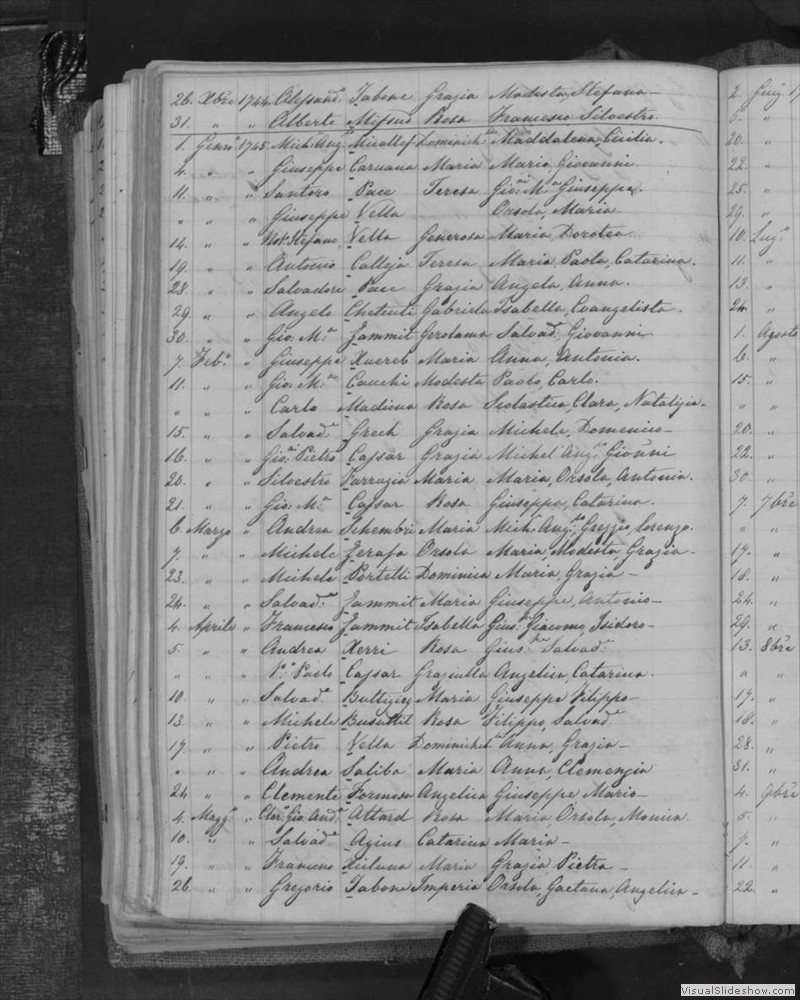 26. Xbre 1744 Alessand.o Tabone Grazia Modesta, Stefana
31. " " Alberto Mifsud Rosa Francesco Silvestro.
1. Genn.o 1745. Mich: Ang. Micallef Dominich.lla Maddalena, Cicilia.
4. " " Giuseppe Caruana Maria Mario, Giovanni
11. " " Santoro Pace Teresa Gio: M.a Giuseppe.
" " " Giuseppe Vella Orsola, Maria
14. " " Not: Stefano Vella Generosa Maria Dorotea
19. " " Antonio Calleja Teresa Maria Paola, Catarina.
28. " " Salvadore Pace Grazia Angela, Anna.
29. " " Angelo Chetcuti Gabriela Isabella, Evangelista.
30. " " Gio: M.a Zammit Gerolama Salvad.e Giovanni
7. Feb.o " Giuseppe Xuereb Maria Anna, Antonia.
11. " " Gio: M.a Cauchi Modesta Paolo, Carlo.
" " " Carlo Madiona Rosa Scolastica, Clara, Natalizia.
15. " " Salvad.e Grech Grazia Michele, Domenico
16. " " Gio: Pietro Cassar Grazia Michel'Ang.o Giovanni
20. " " Silvestro Farrugia Maria Maria, Orsola, Antonia.
21. " " Gio: M.a Cassar Rosa Giuseppa, Catarina.
6. Marzo " Andrea Schembri Maria Mich: Ang.o Lorenzo.
7. " " Michele Zerafa Orsola Maria, Modesta, Grazia
23. " " Michele Portelli Dominica Maria, Grazia
24. " " Salvad.e Zammit Maria Giuseppe, Antonio
4. Aprile " Francesco Zammit Isabella Gius: Giacomo, Isidoro
5. " " Andrea Xerri Rosa Gius: Salvad.e
" " " Paolo Cassar Graziulla Angelica, Catarina.
10. " " Salvad.e Buttigieg Maria Giuseppe Filippo
13. " " Michele Busuttil Rosa Filippo, Salvad.e
17. " " Pietro Vella Dominichella Anna, Grazia
" " " Andrea Saliba Maria Anna, Clemenzia
24. " " Clemente Formosa Angelica Giuseppe Mario
4. Magg.o " Cler: Gio: And.a Attard Rosa Maria Orsola, Monica.
10. " " Salvad.e Agius Catarina Maria
19. " " Francesco Xicluna Maria Grazia Pietra
26. " " Gregorio Tabone Imperia Orsola, Gaetana, Angelica
2. Giug.
5. "
20. "
22. "
25. "
29. "
10. Lug.o
11. "
13. "
24. "
1. Agosto
6. "
15. "
" "
20. "
22. "
30. "
7. 7bre
" "
17. "
18. "
24. "
29. "
13. 8bre
" "
17. "
18. "
28. "
31. "
4. 9bre
5. "
7. "
11. "
22. "
VisualSlideshow.com